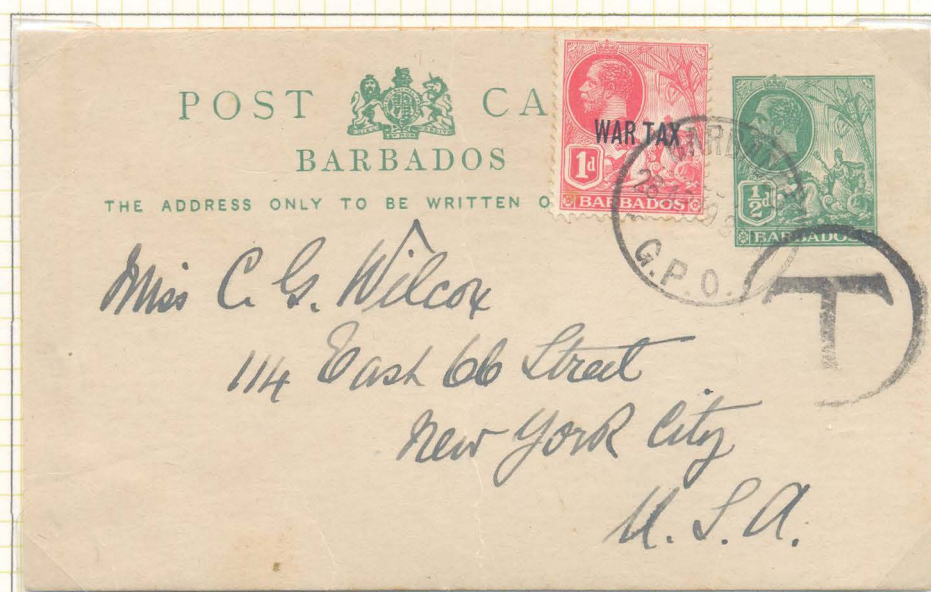 POST CA
BARBADOS
THE ADDRESS ONLY TO BE WRITTEN O
WAR TAX
1d
BARBADOS
½d
BARBADOS
G.P.O.
T
Miss C. G. Wilcox
114 East 66 Street
New York City
U.S.A.